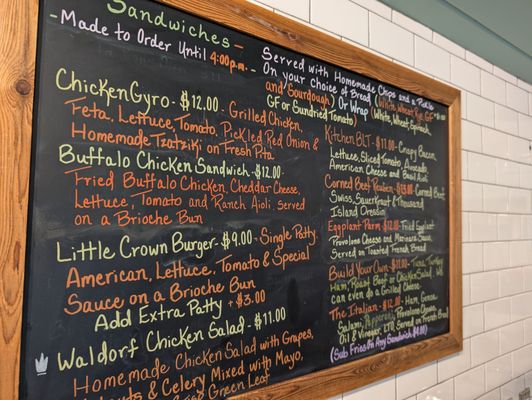 Sandwiches
- Made to Order Until 4:00pm -
Chicken Gyro - $12.00 - Grilled Chicken,
Feta, Lettuce, Tomato, Pickled Red Onion &
Homemade Tzatziki on Fresh Pita
Buffalo Chicken Sandwich - $12.00 -
Fried Buffalo Chicken, Cheddar Cheese,
Lettuce, Tomato and Ranch Aioli, Served
on a Brioche Bun
Little Crown Burger - $9.00 - Single Patty,
American, Lettuce, Tomato & Special
Sauce on a Brioche Bun
Add Extra Patty + $3.00
Waldorf Chicken Salad - $11.00
Homemade Chicken Salad with Grapes,
& Celery Mixed with Mayo,
Green Leaf
Served with Homemade Chips and a Pickle
On your choice of Bread (White, Wheat, Rye, GF
and Sourdough) Or Wrap (White, Wheat, Spinach,
GF or Sundried Tomato)
Kitchen BLT - $11.00 - Crispy Bacon,
Lettuce, Sliced Tomato, Avocado,
American Cheese and Basil Aioli
Corned Beef Reuben - $13.00 - Corned Beef,
Swiss, Sauerkraut & Thousand
Island Dressing
Eggplant Parm - $12.00 - Fried Eggplant
Provolone Cheese and Marinara Sauce,
Served on Toasted French Bread
Build Your Own - $11.00 - Tuna, Turkey,
Ham, Roast Beef or Chicken Salad. We
can even do a Grilled Cheese
The Italian - $12.00 - Ham, Genoa
Salami, Pepperoni, Provolone Cheese,
Oil & Vinegar, LTO, Served on French Bread
(Sub Fries For Any Sandwich $4.00)